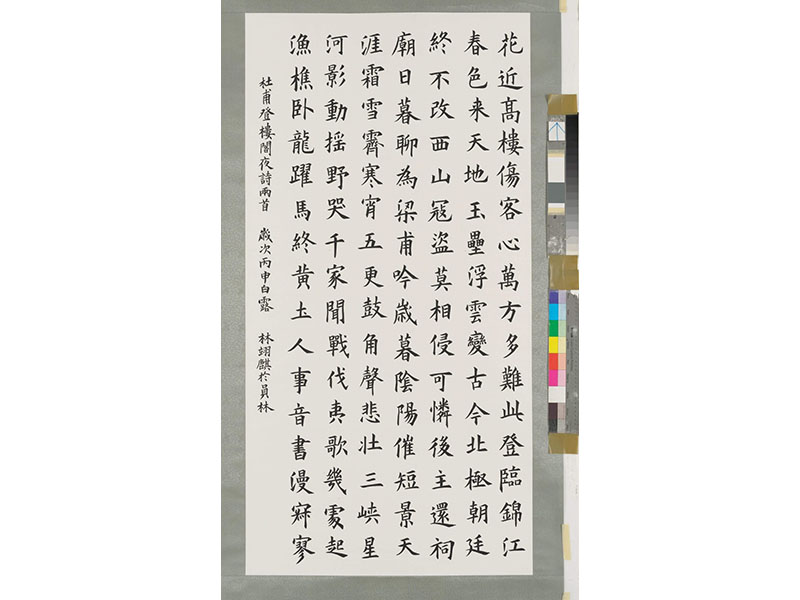 花近高樓傷客心萬方多難此登臨錦江
春色来天地玉壘浮雲變古今北極朝廷
終不改西山冦盜莫相侵可憐後主還祠
廟日暮聊為梁甫吟歲暮陰陽催短景天
涯霜雪霽寒宵五更鼓角聲悲壯三峽星
河影動揺野哭千家聞戰伐夷歌幾處起
漁樵卧龍躍馬終黃土人事音書漫寂寥
杜甫登樓閣夜詩兩首 歲次丙申白露 林翊麒於員林